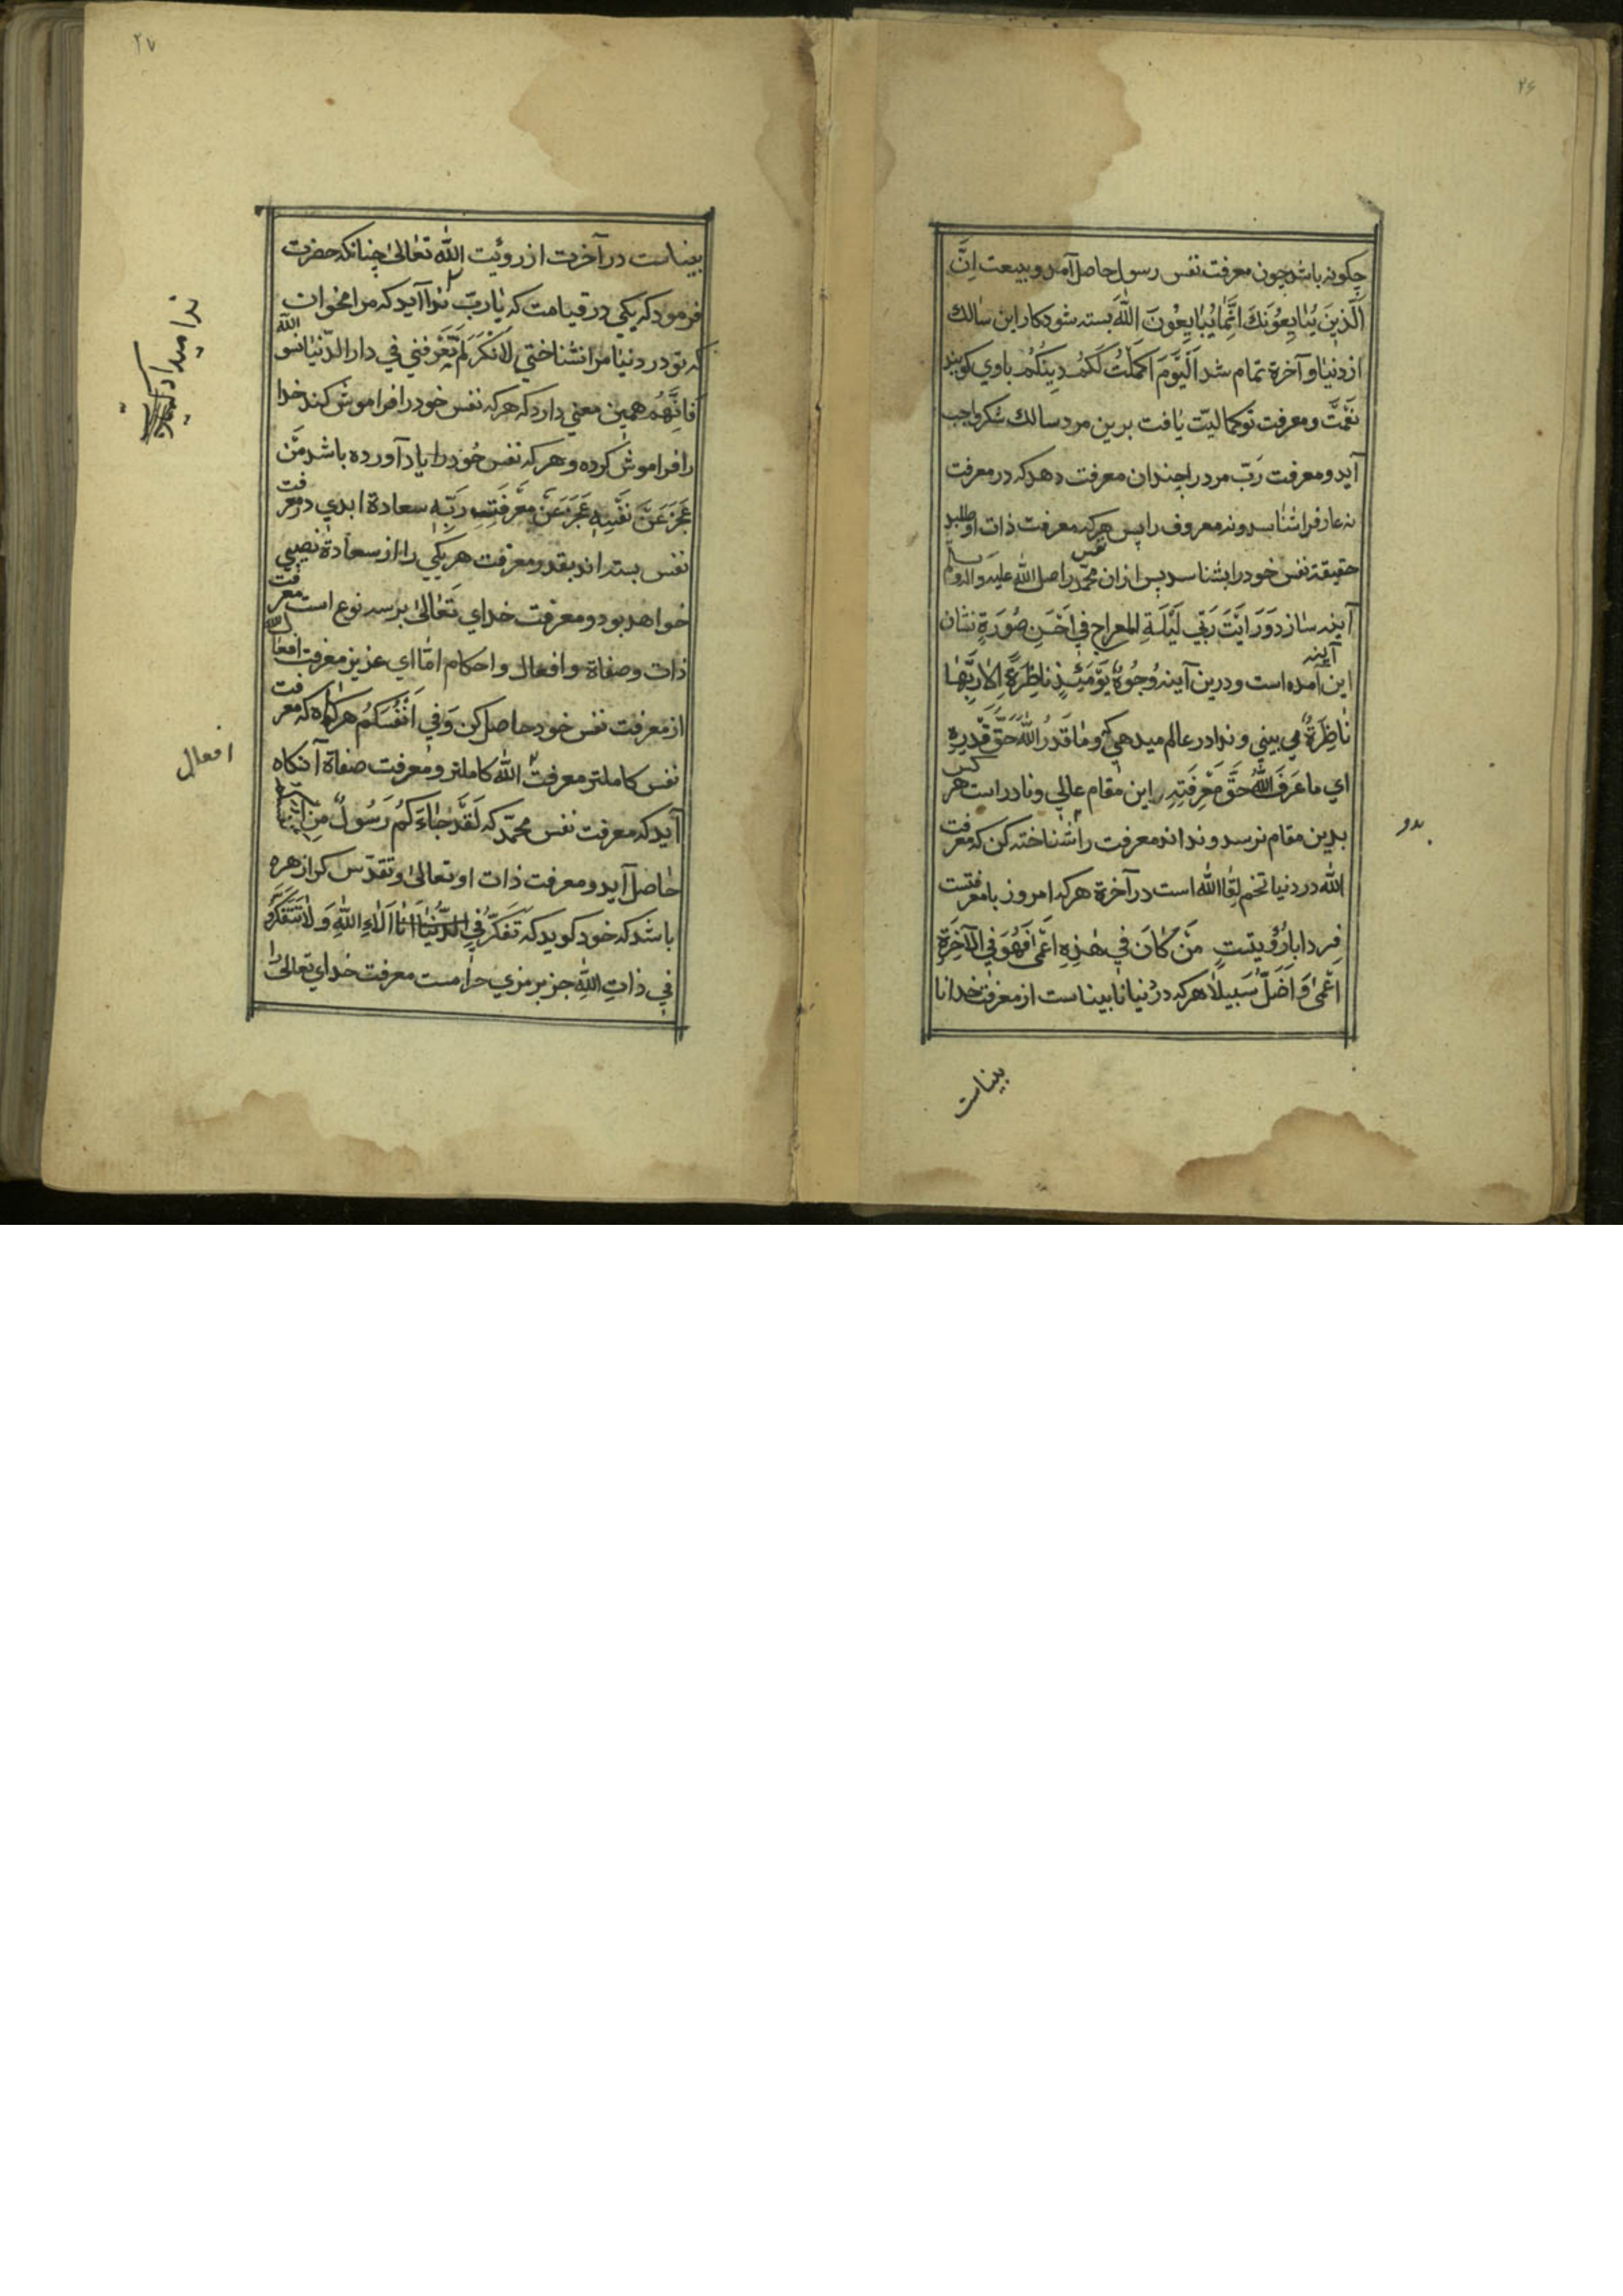 ۲۶
چكونه باشد چون معرفت نفس رسول حاصل آمد و بيعت اِنَّ
الَّذينَ يُبٰايِعُونَكَ اِنَّمٰا يُبٰايِعُوْنَ اللّٰهَ بسته شود كار اين سٰالك
از دنيٰا و آخرة تمام شد اَلْيَوْمَ اَكْمَلْتُ لَكُمْ دِينَكُمْ باوي كويند
نعمت و معرفت تو كماليّت يٰافت برين مرد سالك شكر واجب
آيد و معرفت رَبّ مر درا چندان معرفت دهد كه در معرفت
نه عارف را شناسد و نه معروف را پس هركه معرفت ذات او طلبد
حقيقة نفس خود را بشناسد پس ازان نفس محمّد را صلّي اللّٰه عليه و آله و سلّم
آينه سٰازد وَرَاَيْتَ رَبّي لَيْلَةِ المعراج في اَحْسَنِ صُوْرَةٍ نشان
اين آينه آمده است و درين آينه وُجُوْهٌ يَوْمَئِذٍ نٰاظِرَةٌ اِلٰا رَبِّهٰا
نٰاظِرَةٌ مي بيني و ندا در عالم ميدهي كه و مٰا قَدَرُ اللّٰهَ حَقَّ قَدْرِهِ
اي مٰا عَرَفَ اللّٰهُ حَقَّ مَعْرِفَتِهِ اين مقام عالي و نادر است هر كس
بدين مقام نرسد و نداند معرفت را شناخته كن كه معرفت
بدو
اللّٰه در دنيا تخم لقا اللّٰه است در آخرة هركه امروز با معرفتست
فردا بارُؤيتست مَنْ كٰانَ في هٰذِهِ اَعْمٰى فَهُوَ فِي الْآخِرَةِ
اَعْمىٰ وَ اَضَلُّ سَبيلاً هركه در دنيا نابيناست از معرفت خدا نا
بيناست
۲۷
بيناست در آخرت از رويت اللّٰه تعٰالىٰ چنانكه حضرت
فرمود كه يكي در قيامت كه يٰا ربّ ندا آيد كه مرا مخوان
ندا ميداد
كه تو در دنيٰا مرا نشناختي لاٰنَكَ لَمْ تَعْرِفني في دار الدّنيٰا نسو اللّٰه
فَاِنَّهُمْ همين معني دارد كه هركه نفس خود را فراموش كند خدا
را فراموش كرده و هركه نفس خود را ياد آورده باشد مَنْ
عَجَزَ عَنْ نَفْسِهِ عَجَزَ عَنْ مَعْرِفَتِهِ رَبِّهِ سعادة ابدي در معرفت
نفس بسته اند بقدر معرفت هر يكي را از سعادة نصيبي
خواهد بود و معرفت خداي تعٰالىٰ بر سه نوع است معرفت
ذات و صفاة و افعال و احكام امّا اي عزيز معرفت افعال اللّٰه
از معرفت نفس خود حاصل كن وَفي اَنْفُسِكُمْ هركاه كه معرفت
افعال
نفس كاملتر معرفت اللّٰه كاملتر و معرفت صفاة آنكاه
آيد كه معرفت نفس محمّد كه لَقَدْ جٰاءَكُمْ رَسُولٌ مِنْ اَنْفُسِكُمْ
حٰاصل آيد و معرفت ذات او تعالىٰ و تقدّس كرا زهره
باشد كه خود كويد كه تَفَكَّرُ في الدُّنْيٰا اَنٰا اَلاٰءِ اللّٰهِ وَ لاٰ تَتَفَكَّرُو
في ذاتِ اللّٰهِ جز برمزي حرامست معرفت خداي تعالىٰ را